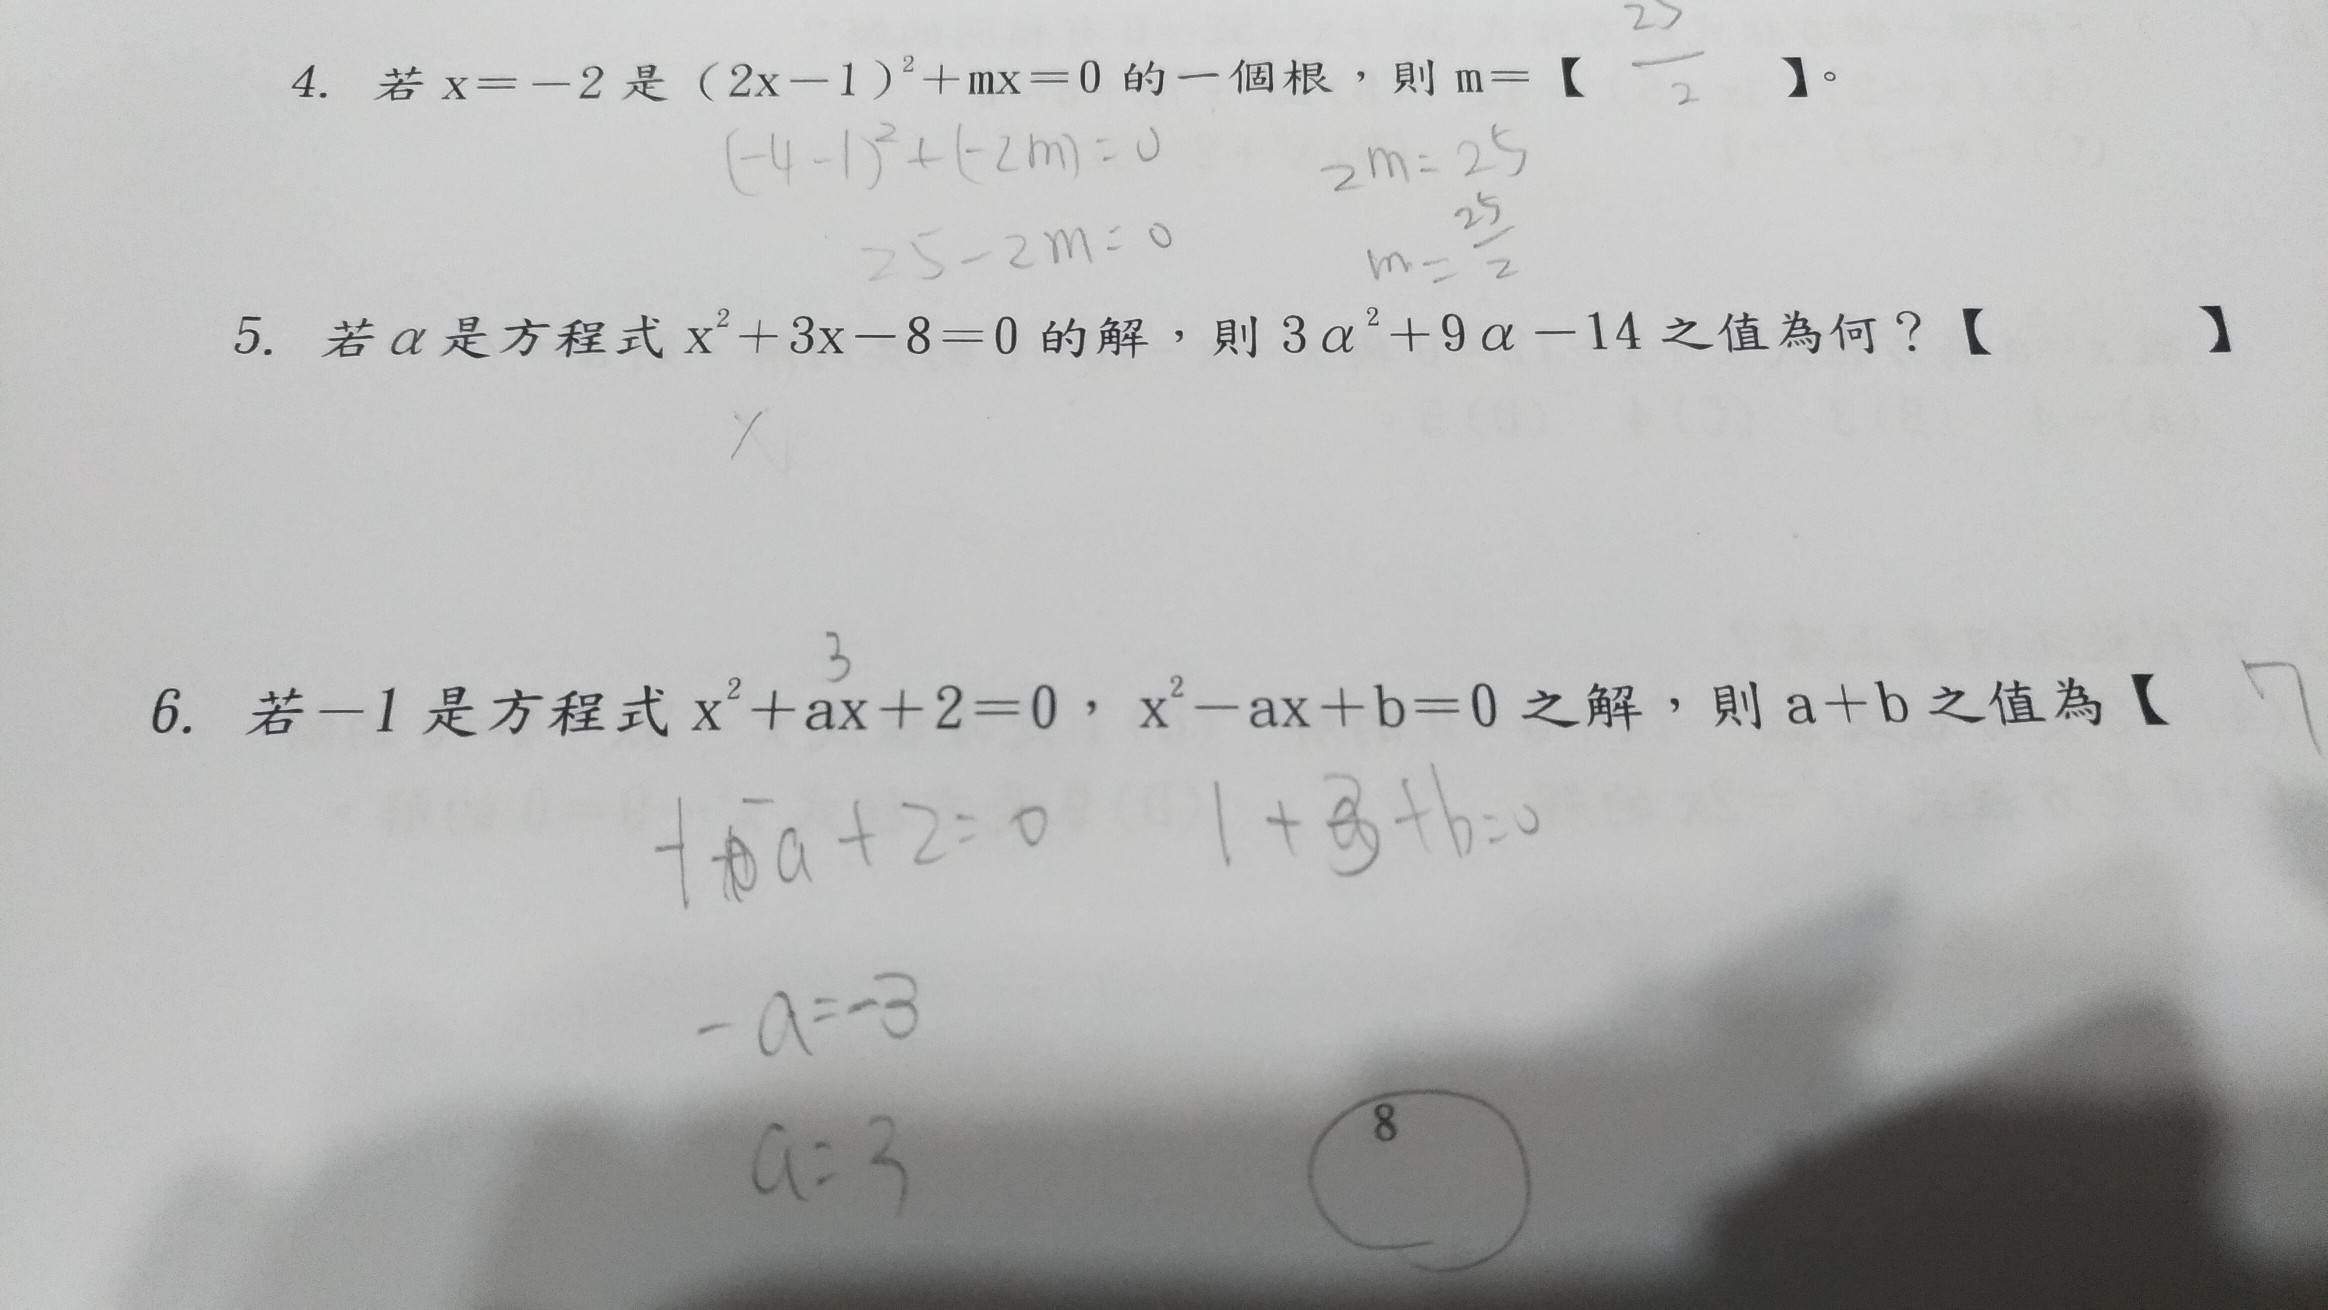 4. 若 x=-2 是 (2x-1)²+mx=0 的一個根，則 m=【 25/2 】。
(-4-1)²+(-2m)=0 2m=25
25-2m=0 m=25/2
5. 若 α 是方程式 x²+3x-8=0 的解，則 3α²+9α-14 之值為何？【 】
x
3
6. 若-1 是方程式 x²+ax+2=0，x²-ax+b=0 之解，則 a+b 之值為【 7
a+2=0 1+3+b=0
-a=-3
a=3
8